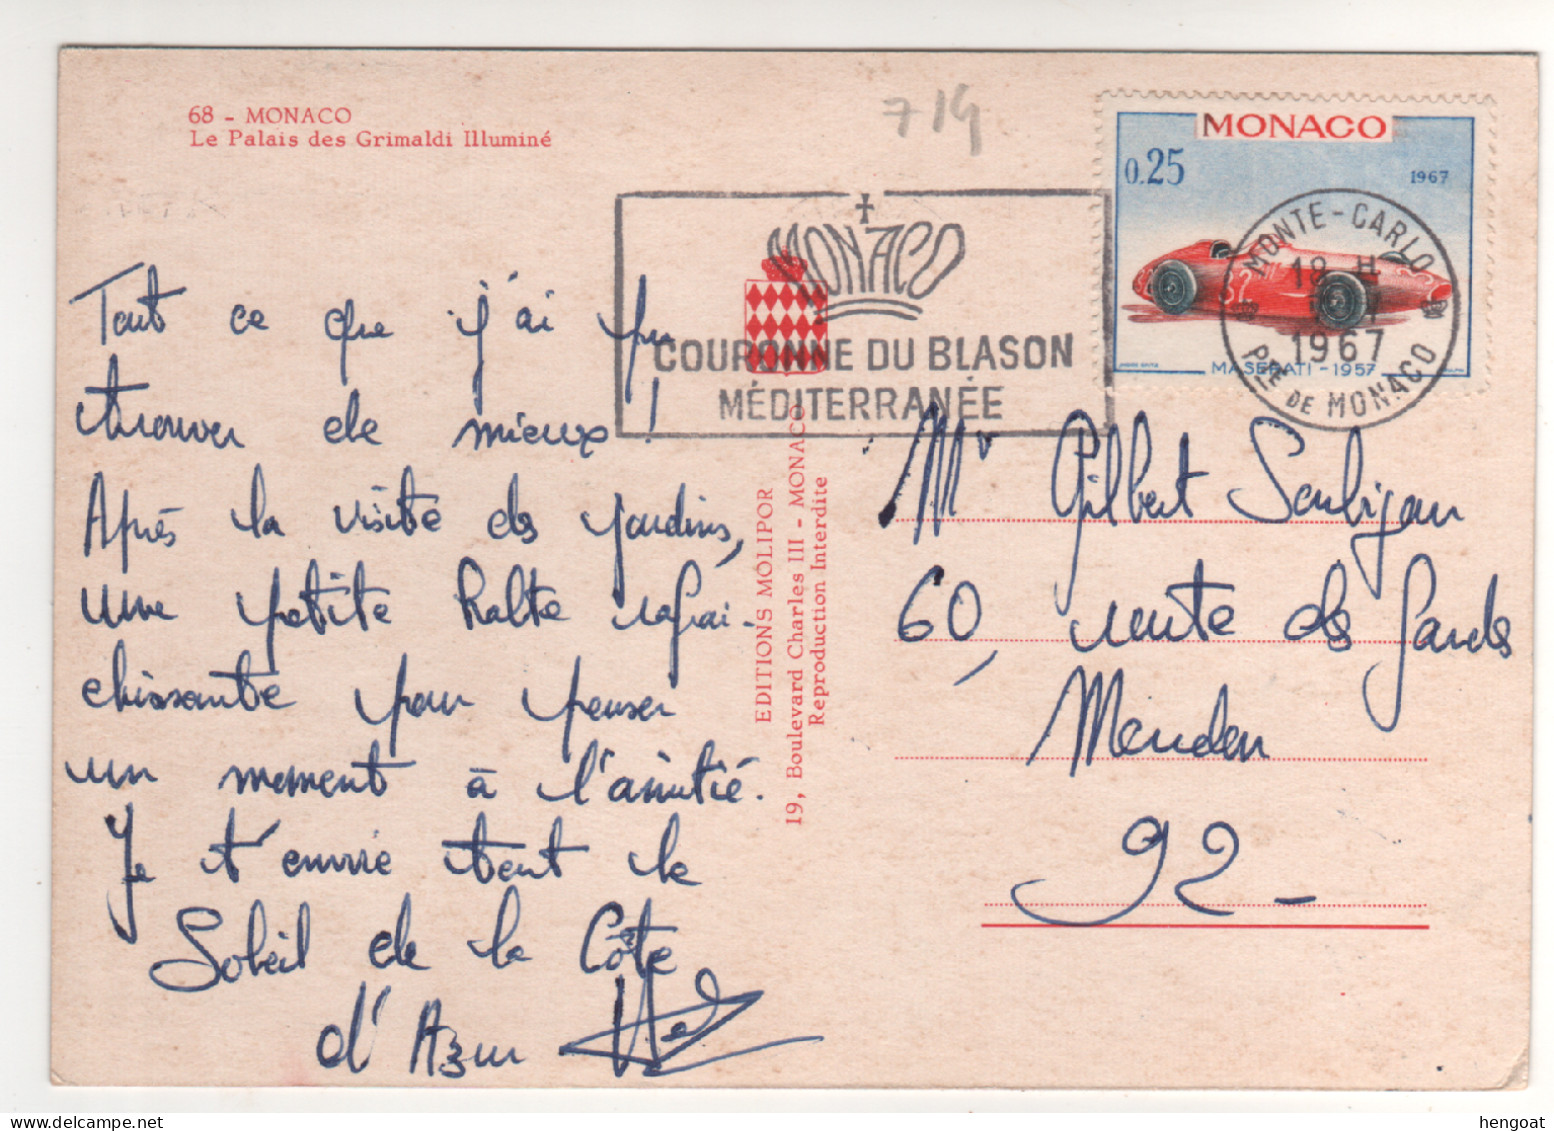 68 - MONACO
Le Palais des Grimaldi Illuminé
719
MONACO
0.25
1967
MASERATI - 1957
32
MONTE-CARLO
18 H
1967
PTÉ DE MONACO
MONACO
COURONNE DU BLASON
MÉDITERRANÉE
Tout ce que j'ai pu
trouver de mieux !
Après la visite des jardins,
une petite halte rafraî-
chissante pour penser
un moment à l'amitié.
Je t'envoie tout le
Soleil de la Côte
d'Azur
EDITIONS MOLIPOR
19, Boulevard Charles III - MONACO
Reproduction Interdite
Mr Gilbert
60, route des Gardes
Meudon
92 -
hengoat